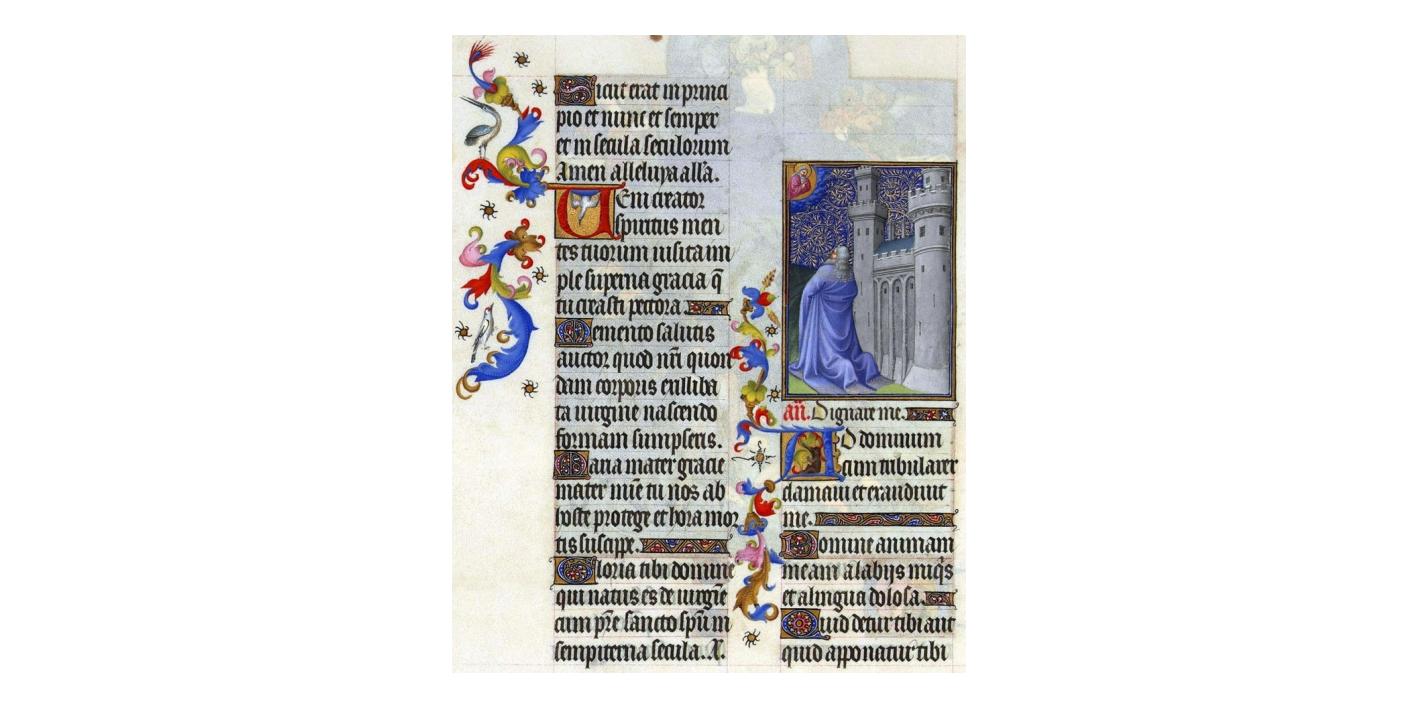 Sicut erat in princi
pio et nunc et semper
et in secula seculorum
Amen alleluya all'a.
Veni creator
spiritus men
tes tuorum visita im
ple superna gracia q̄
tu creasti pectora.
Memento salutis
auctor quod nr̄i quon
dam corporis ex illiba
ta virgine nascendo
formam sumpseris.
Maria mater gracie
mater mi̅e tu nos ab
hoste protege et hora mor
tis suscipe.
Gloria tibi domine
qui natus es de virgīe
cum pr̄e sancto sp̄u in
sempiterna secula. A.
an̄. Dignare me.
AD dominum
cum tribularer
clamavi et exaudivit
me.
Domine animam
meam a labijs iniq's
et a lingua dolosa.
Quid detur tibi aut
quid apponatur tibi